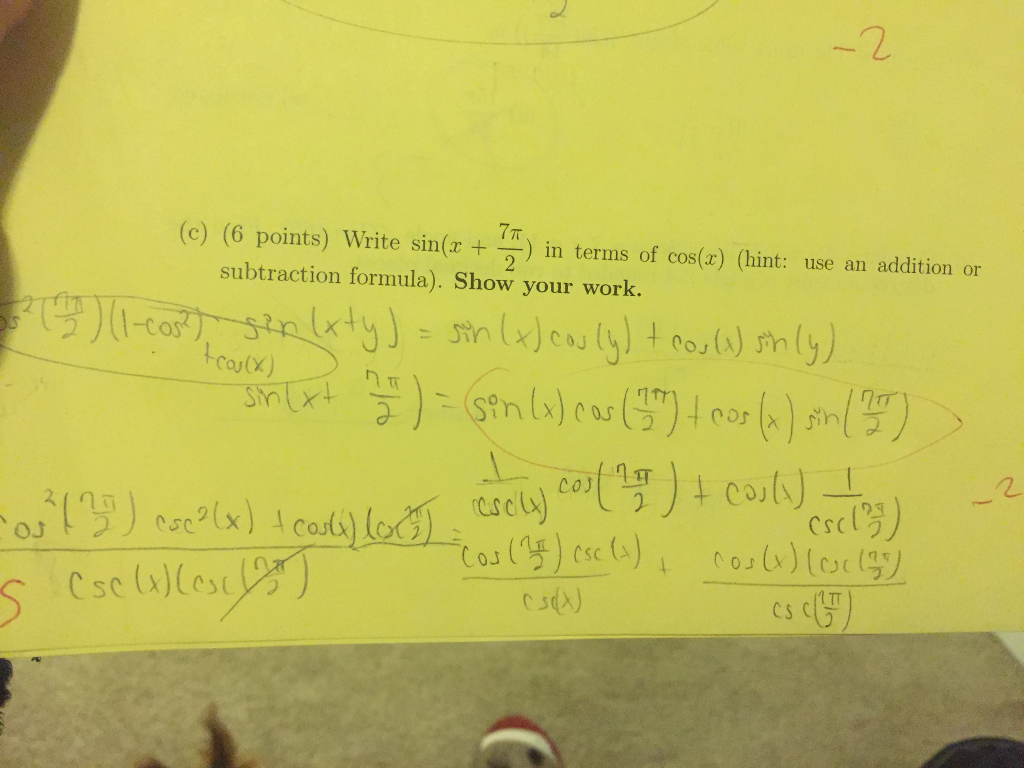 2
-2
(c) (6 points) Write sin(x + 7π/2) in terms of cos(x) (hint: use an addition or
subtraction formula). Show your work.
os²(7π/2)(1-cos²) sin(x+y) = sin(x)cos(y) + cos(x) sin(y)
+cos(x)
sin(x+ 7π/2) = sin(x) cos(7π/2) + cos(x) sin(7π/2)
1/csc(x) cos(7π/2) + cos(x) 1/csc(7π/2)
-2
cos²(7π/2) csc²(x) + cos(x)(csc(7π/2)) / csc(x)(csc(7π/2)) = cos(7π/2) csc(x) / csc(x) + cos(x)(csc(7π/2)) / csc(7π/2)
5